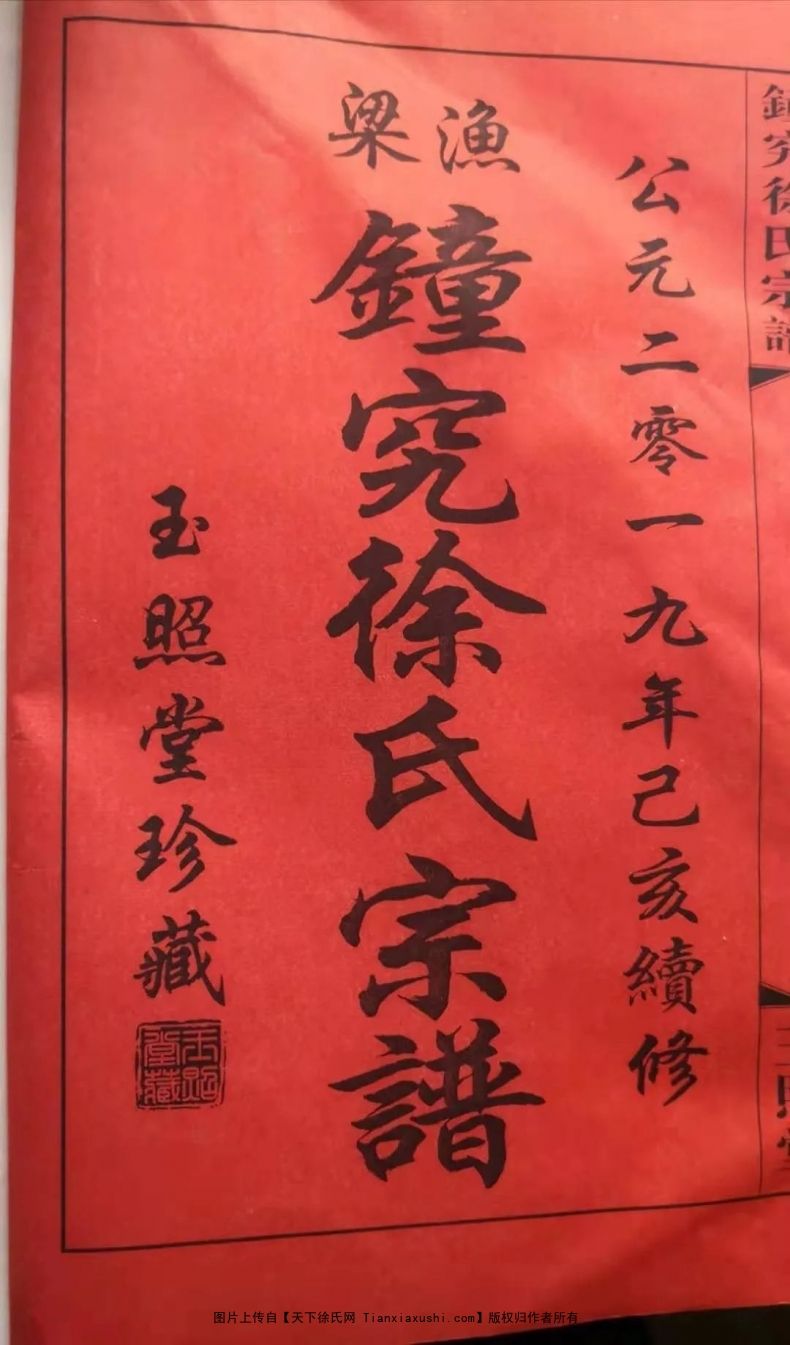 公元二零一九年己亥續修
漁梁
鐘究徐氏宗譜
玉照堂珍藏
玉照堂藏
鐘究徐氏宗譜
图片上传自【天下徐氏网 Tianxiaxushi.com】版权归作者所有